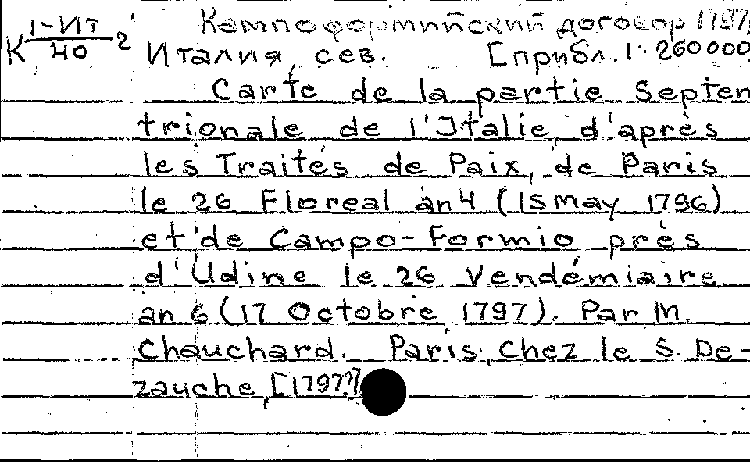 К 1-Ит/40 2 Кампоформийский договор 1797
Италия, сев. [Прибл. 1:260000
Carte de la partie Septen
trionale de l'Italie, d'après
les Traités de Paix, de Paris
le 26 Floreal an 4 (15 may 1796)
et de Campo-Formio près
d'Udine le 26 Vendémiaire
an 6 (17 Octobre 1797). Par M.
Chauchard. Paris, Chez le S. De-
zauche, [1797?]